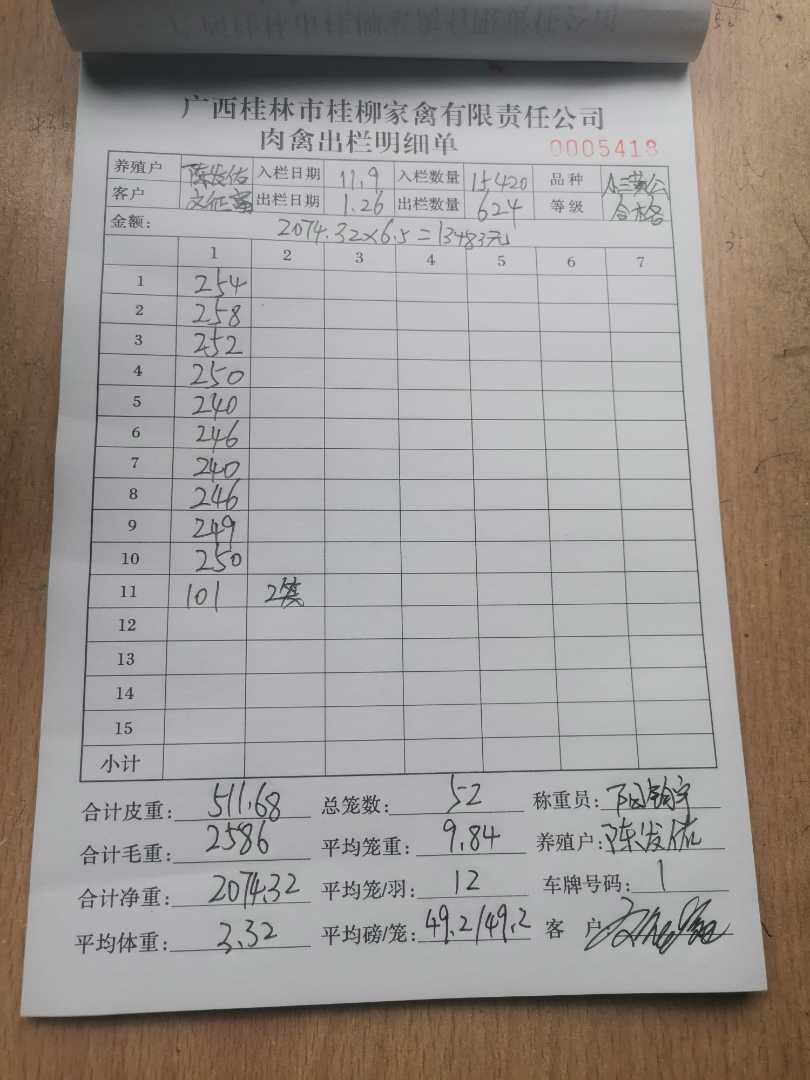 广西桂林市桂柳家禽有限责任公司
肉禽出栏明细单 0005418
养殖户 陈发佑 入栏日期 11.9 入栏数量 15420 品种 小三黄公
客户 文征富 出栏日期 1.26 出栏数量 624 等级 合格
金额: 2074.32×6.5=13483元
1 2 3 4 5 6 7
1 254
2 258
3 252
4 250
5 240
6 246
7 240
8 246
9 249
10 250
11 101 2笼
12
13
14
15
小计
合计皮重: 511.68 总笼数: 52 称重员:
合计毛重: 2586 平均笼重: 9.84 养殖户: 陈发佑
合计净重: 2074.32 平均笼/羽: 12 车牌号码: 1
平均体重: 3.32 平均磅/笼: 49.2/49.2 客户